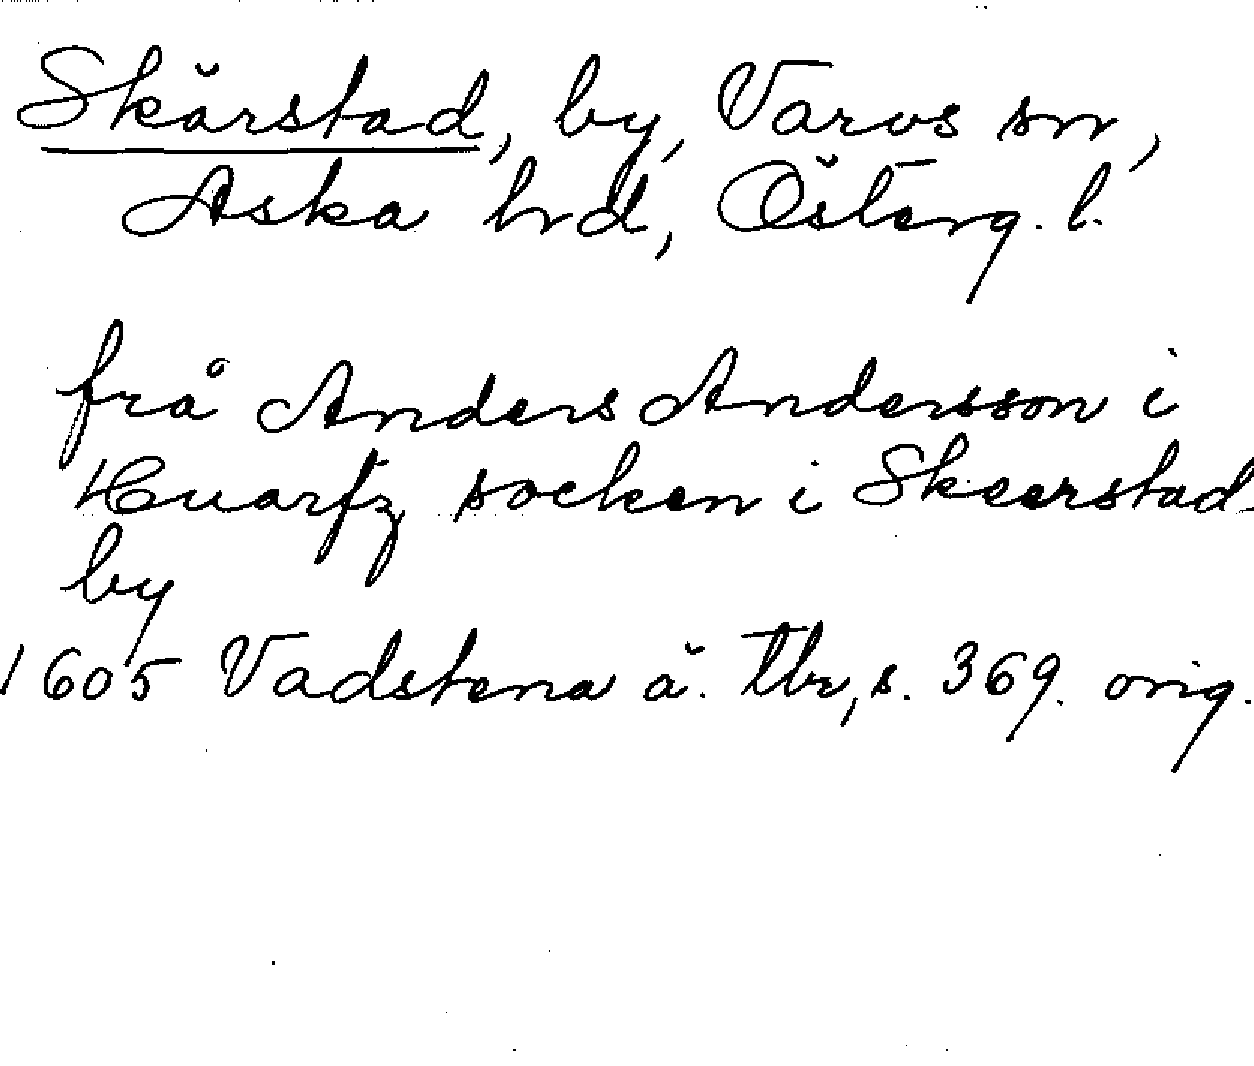 Skärstad, by, Varvs sn,
Aska hrd, Österg. l.
frå Anders Andersson i
Huarfz socken i Skeerstad
by
1605 Vadstena ä. tbr, s. 369. orig.